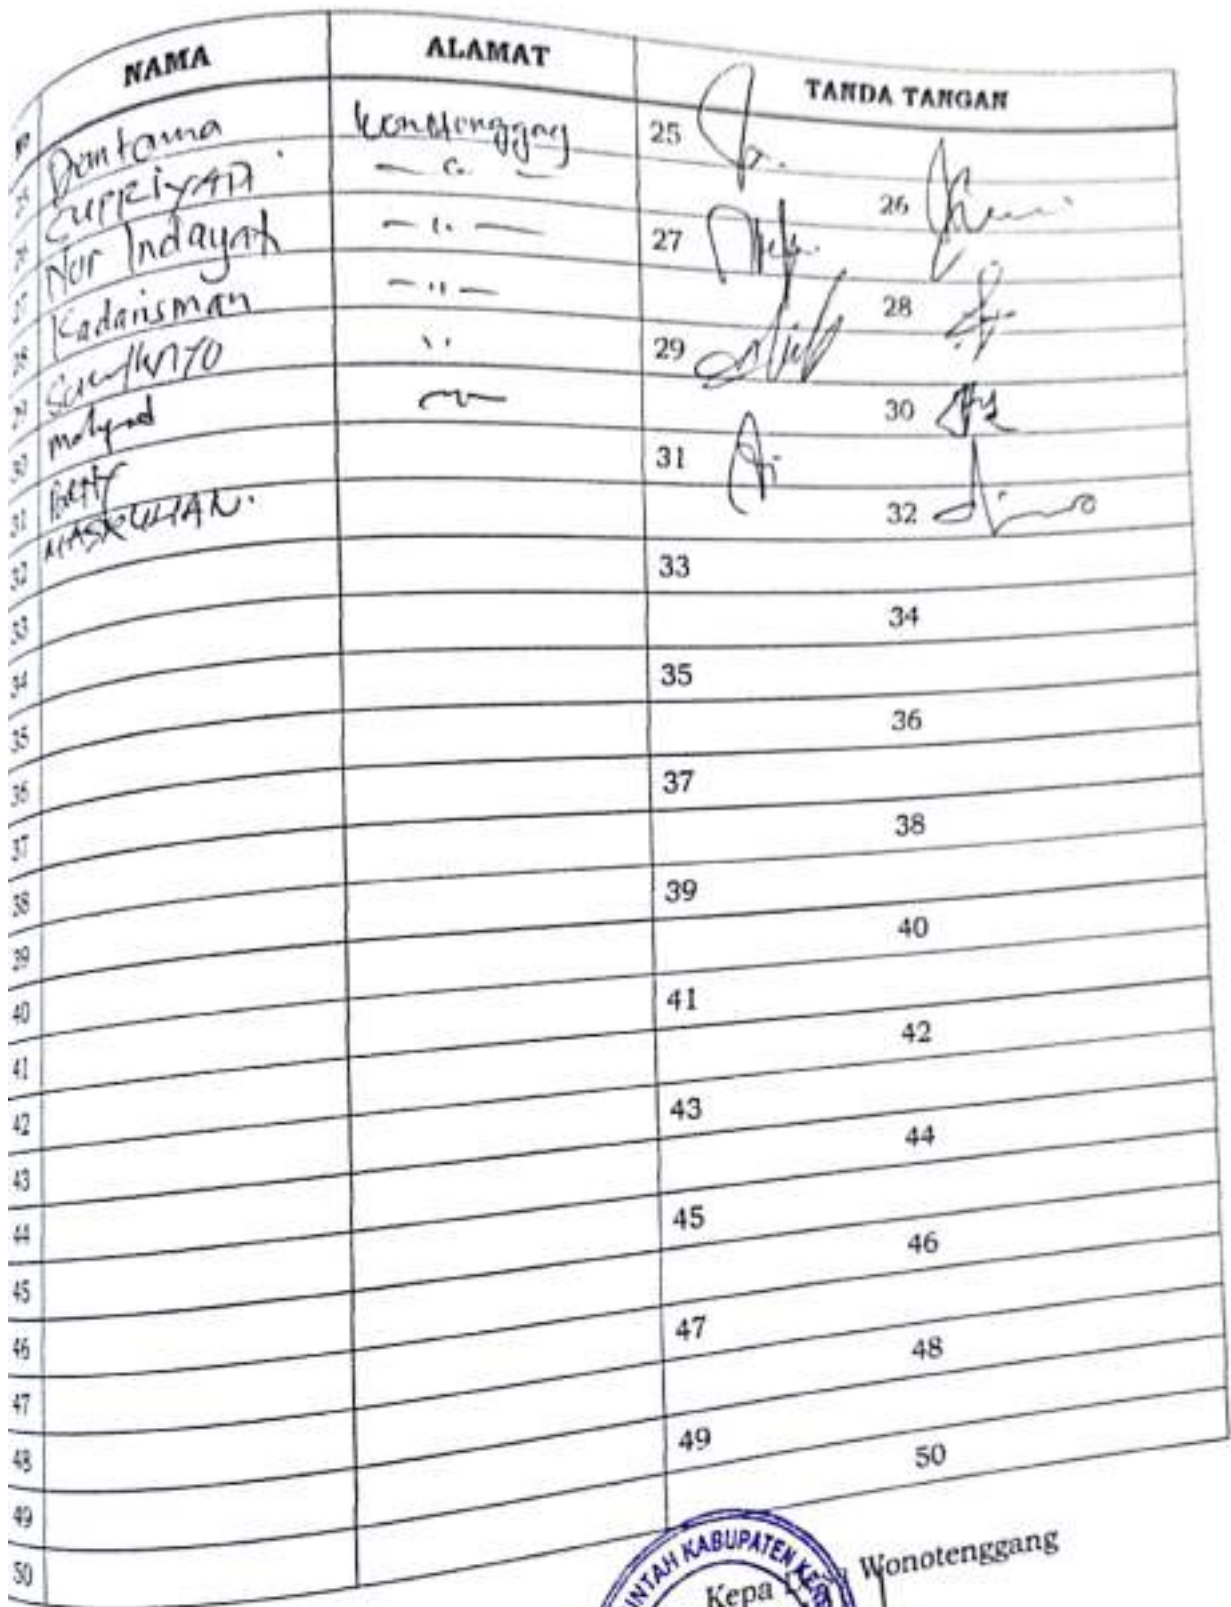 NO NAMA ALAMAT TANDA TANGAN
25 Dantama Wonotenggang 25
26 SUPRIYADI — " — 26
27 Nur Indayah — " — 27
28 Kadarisman — " — 28
29 " 29
30 30
31 31
32 MASRUHAN. 32
33 33
34 34
35 35
36 36
37 37
38 38
39 39
40 40
41 41
42 42
43 43
44 44
45 45
46 46
47 47
48 48
49 49
50 50
Wonotenggang
Kepa
KABUPATEN